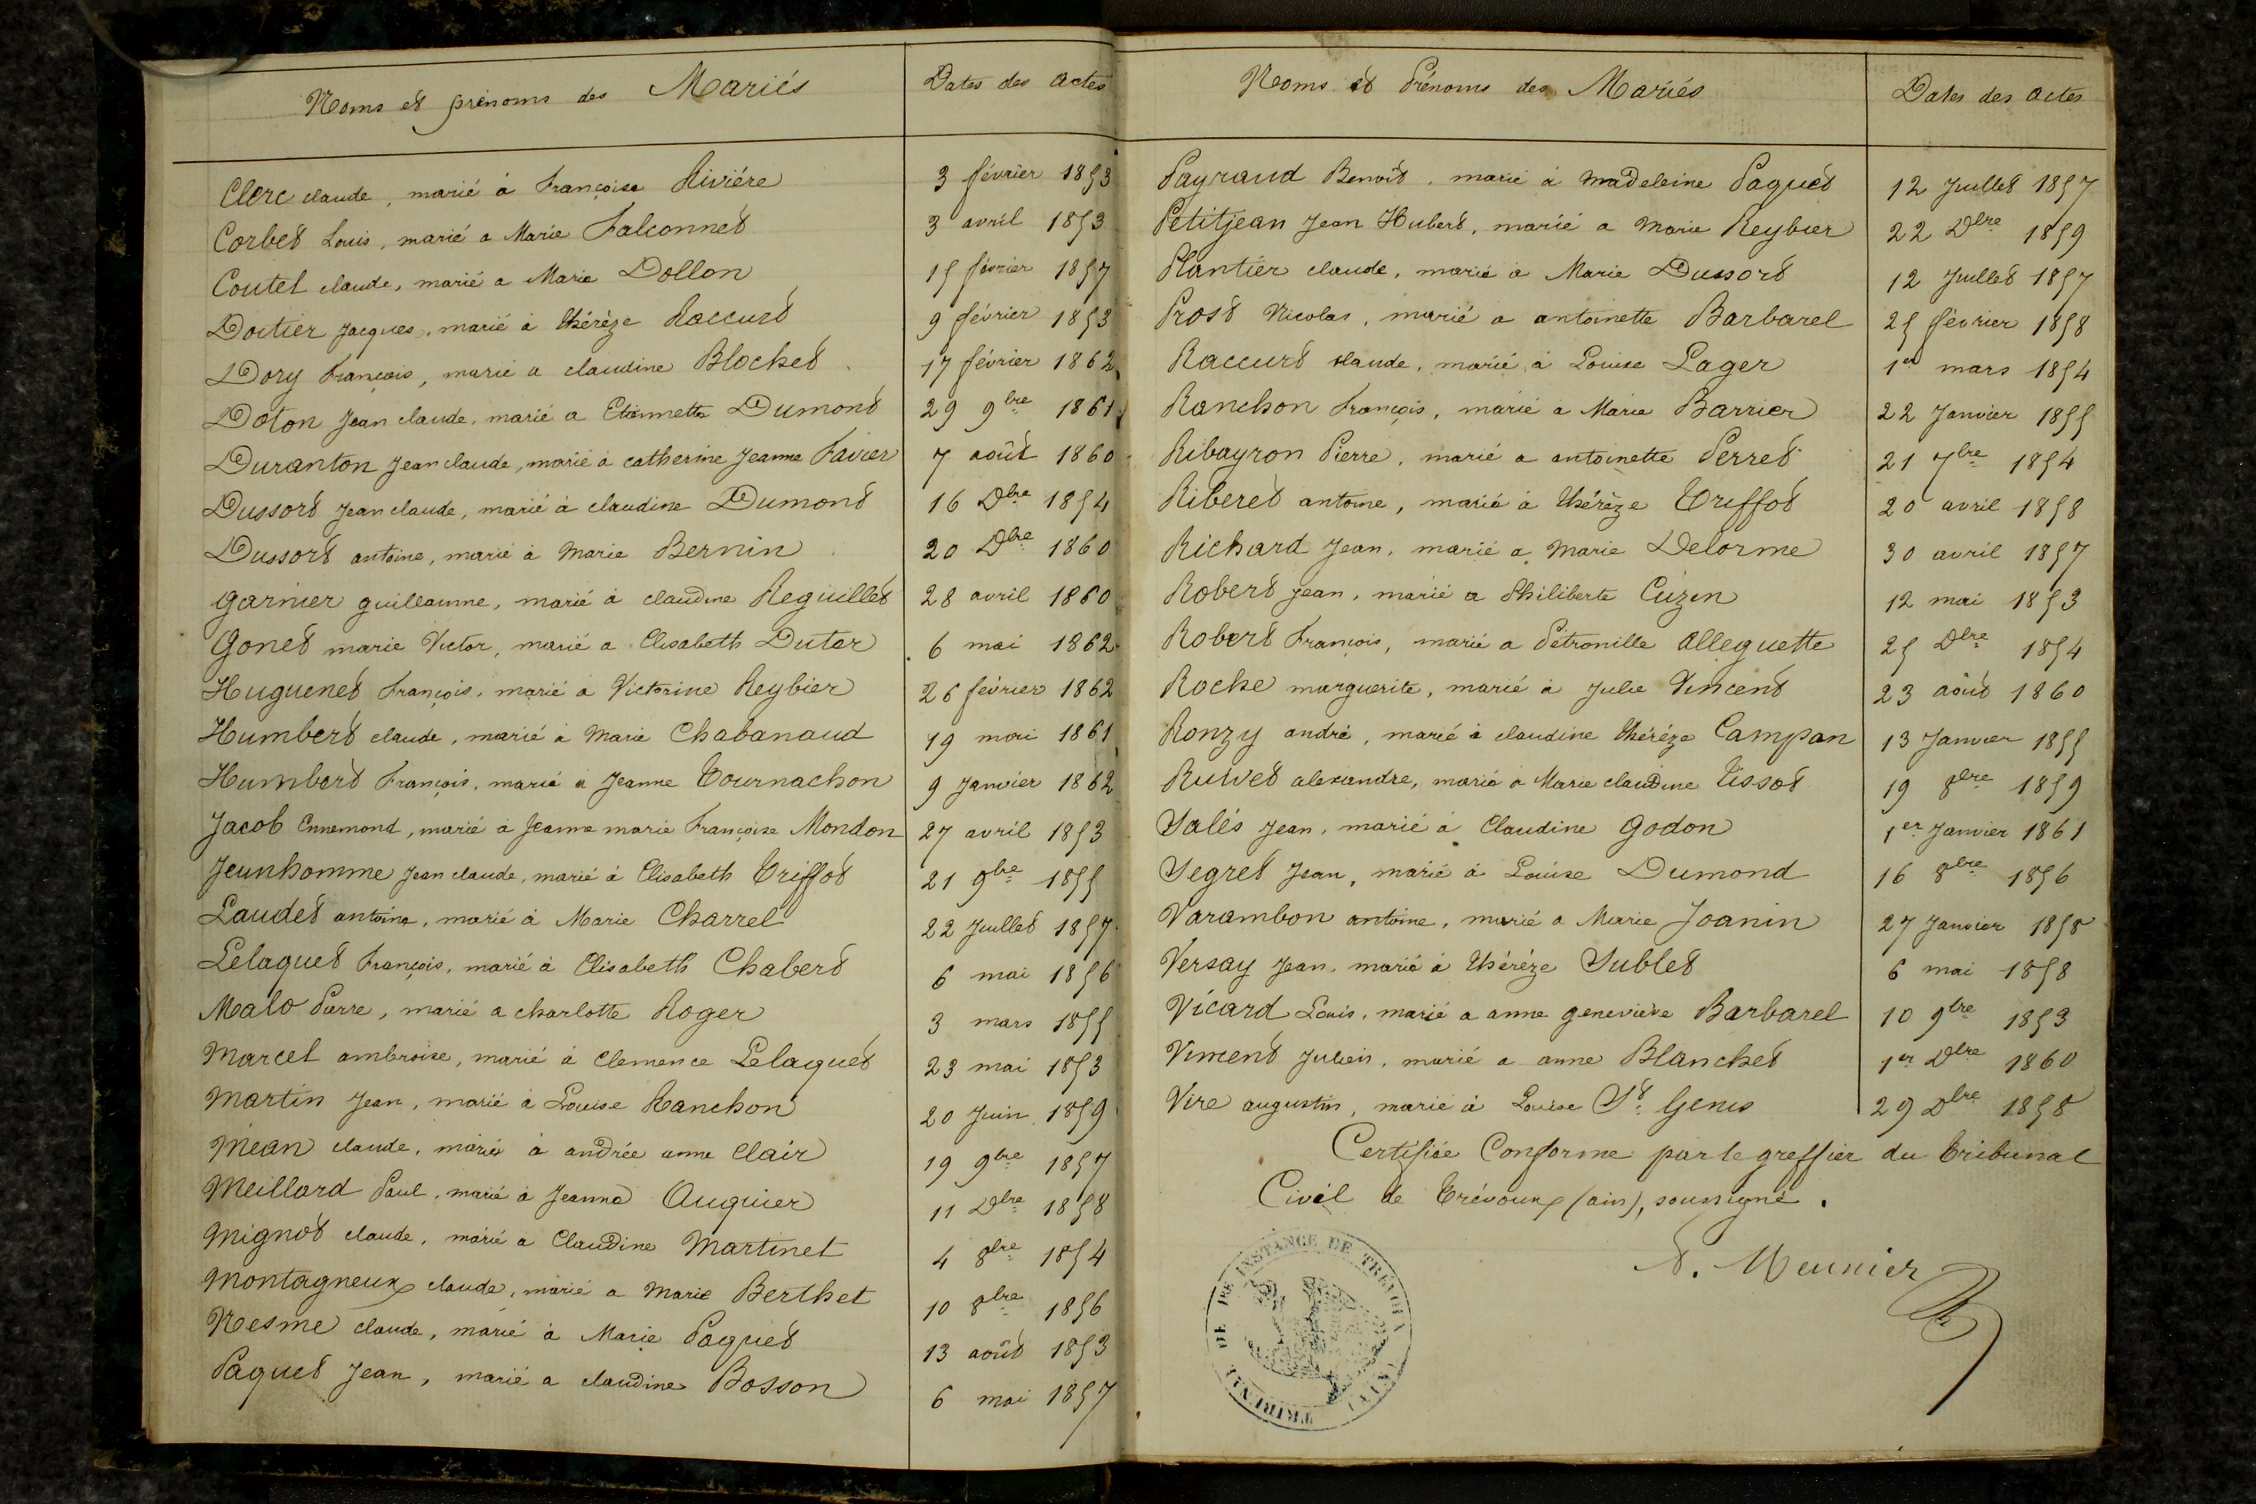 Noms et prénoms des Mariés
Dates des actes
Clerc claude, marié à Françoise Riviére 3 février 1853
Corbet Louis, marié a Marie Falconnet 3 avril 1853
Coutet claude, marié a Marie Dollon 15 février 1857
Doitier Jacques, marié à thérèze Raccurt 9 février 1853
Dory François, marié a claudine Blochet 17 février 1862
Doton Jean claude, marié a Etiennette Dumont 29 9bre 1861
Duranton Jean claude, marié à catherine Jeanne Favier 7 août 1860
Dussort Jean claude, marié à claudine Dumont 16 Dbre 1854
Dussort antoine, marié à Marie Bernin 20 Dbre 1860
Garnier guillaume, marié à claudine Reguillet 28 avril 1860
Gonet marie Victor, marié a Elisabeth Dutar 6 mai 1862
Huguenet François, marié à Victorine Reybier 26 février 1862
Humbert claude, marié à Marie Chabanaud 19 mai 1861
Humbert François, marié à Jeanne Tournachon 9 Janvier 1862
Jacob Ennemond, marié à Jeanne marie Françoise Mondon 27 avril 1853
Jeunhomme Jean claude, marié à Elisabeth Triffot 21 9bre 1855
Laudet antoine, marié à Marie Charrel 22 Juillet 1857
Lelaquet François, marié à Elisabeth Chabert 6 mai 1856
Malo Pierre, marié a charlotte Roger 3 mars 1855
Marcel ambroise, marié à Clemence Lelaquet 23 mai 1853
Martin Jean, marié à Louise Ranchon 20 Juin 1859
Méan claude, marié à andrée anne Clair 19 9bre 1857
Meillard Paul, marié à Jeanne Auguier 11 Dbre 1858
Mignot claude, marié a Claudine Martinet 4 8bre 1854
Montagneux claude, marié a Marie Berthet 10 8bre 1856
Nesme claude, marié à Marie Paquet 13 août 1853
Paquet Jean, marié a claudine Bosson 6 mai 1857
Noms et Prénoms des Mariés
Dates des actes
Payraud Benoît, marié à madeleine Paquet 12 Juillet 1857
Petitjean Jean Hubert, marié a Marie Reybier 22 Dbre 1859
Plantier claude, marié à Marie Dussort 12 Juillet 1857
Prost Nicolas, marié a antoinette Barbarel 25 février 1858
Raccurt claude, marié à Louise Lager 1er mars 1854
Ranchon François, marié à Marie Barrier 22 Janvier 1855
Ribayron Pierre, marié a antoinette Perret 21 7bre 1854
Riberet antoine, marié à thérèze Triffot 20 avril 1858
Richard Jean, marié a Marie Delorme 30 avril 1857
Robert Jean, marié a Philiberte Cuzin 12 mai 1853
Robert François, marié a Pétronille Alleguette 25 Dbre 1854
Roche marguerite, marié à Julie Vincent 23 août 1860
Ronzy andré, marié à claudine thérèze Campan 13 Janvier 1855
Ruivet alexandre, marié à Marie claudine Tissot 19 8bre 1859
Salés Jean, marié à Claudine Godon 1er Janvier 1861
Segret Jean, marié à Louise Dumond 16 8bre 1856
Varambon antoine, marié a Marie Joanin 27 Janvier 1858
Versay Jean, marié à thérèze Sublet 6 mai 1858
Vicard Louis, marié a anne geneviève Barbarel 10 9bre 1853
Vincent Julien, marié a anne Blanchet 1er Dbre 1860
Vire augustin, marié à Louise St Genis 29 Dbre 1858
Certifiée Conforme par le greffier du tribunal
Civil de Trévoux (ain), soussigné.
Meunier
TRIBUNAL DE 1RE INSTANCE DE TRÉVOUX (AIN)